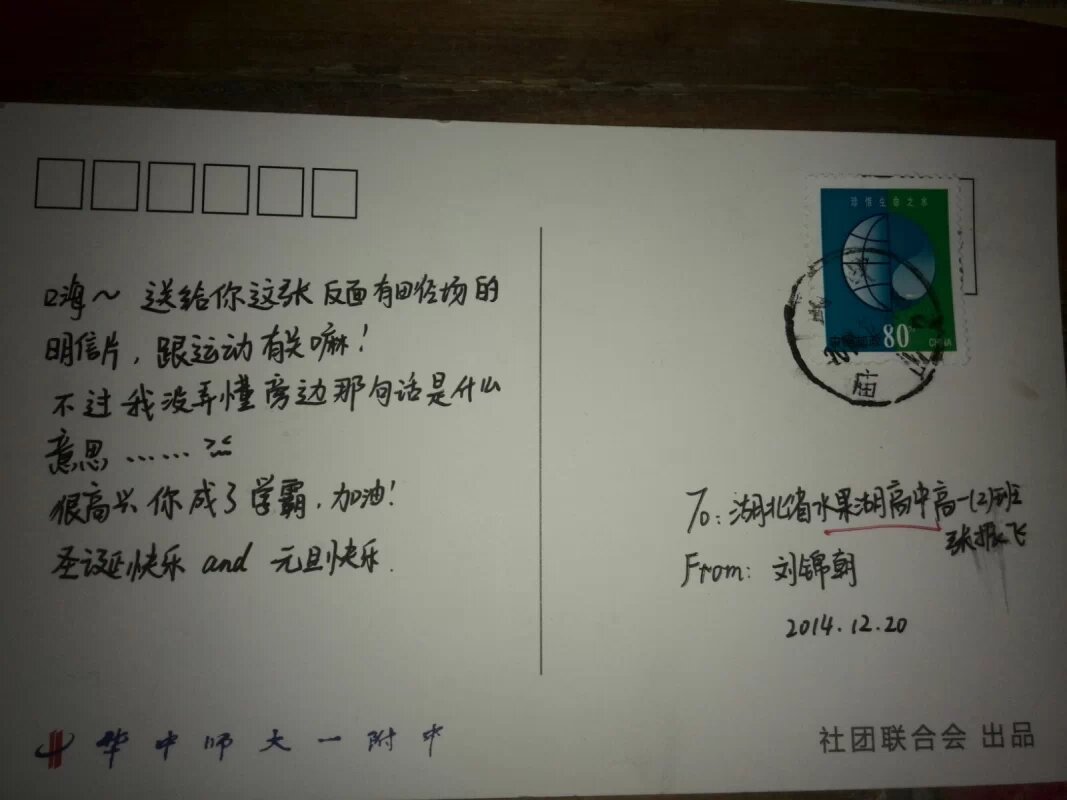 嗨~ 送给你这张反面有田径场的
明信片，跟运动有关嘛！
不过我没弄懂旁边那句话是什么
意思…… >_<
很高兴你成了学霸，加油！
圣诞快乐 and 元旦快乐.
珍惜生命之水
80
CHINA
庙
To: 湖北省水果湖高中高一(2)班
张振飞
From: 刘锦朝
2014.12.20
华中师大一附中
社团联合会 出品